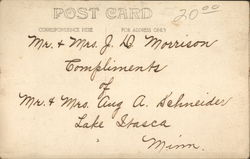 POST CARD
20.00
CORRESPONDENCE HERE FOR ADDRESS ONLY
Mr. & Mrs. J. D. Morrison
Compliments
of
Mr. & Mrs. Aug A. Schneider
Lake Itasca
Minn.